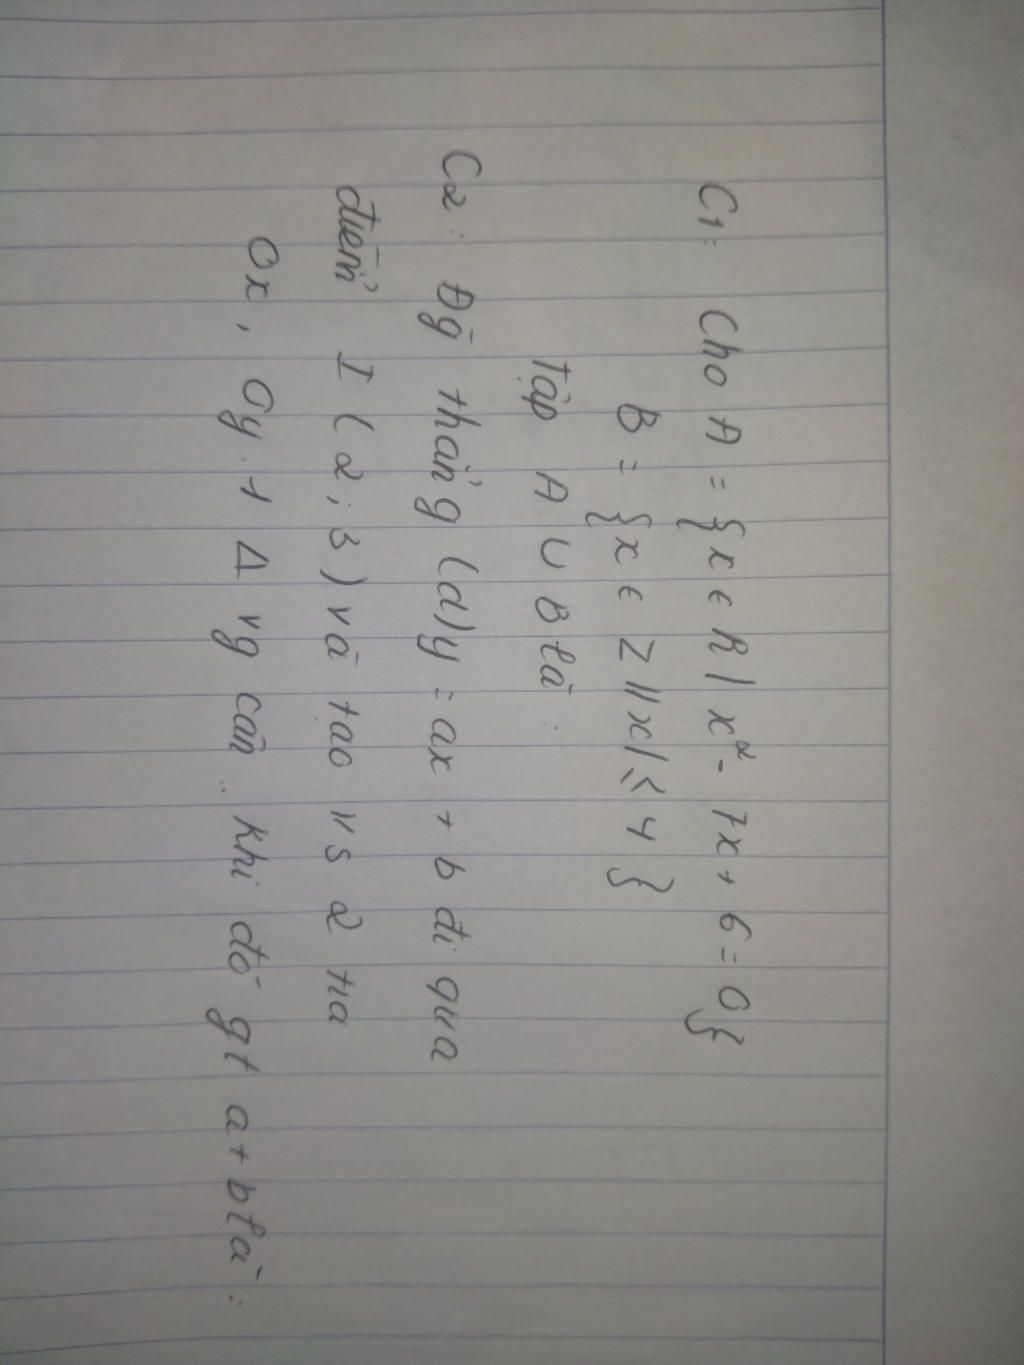 C1: Cho A = {x ϵ R | x² - 7x + 6 = 0}
B = {x ϵ Z ||x| ≤ 4}
Tập A ∪ B là :
C2 : Đg thẳng (d) y = ax + b đi qua
điểm I (2 ; 3) và tạo vs 2 tia
Ox, Oy 1 Δ vg cân. Khi đó gt a + b là :